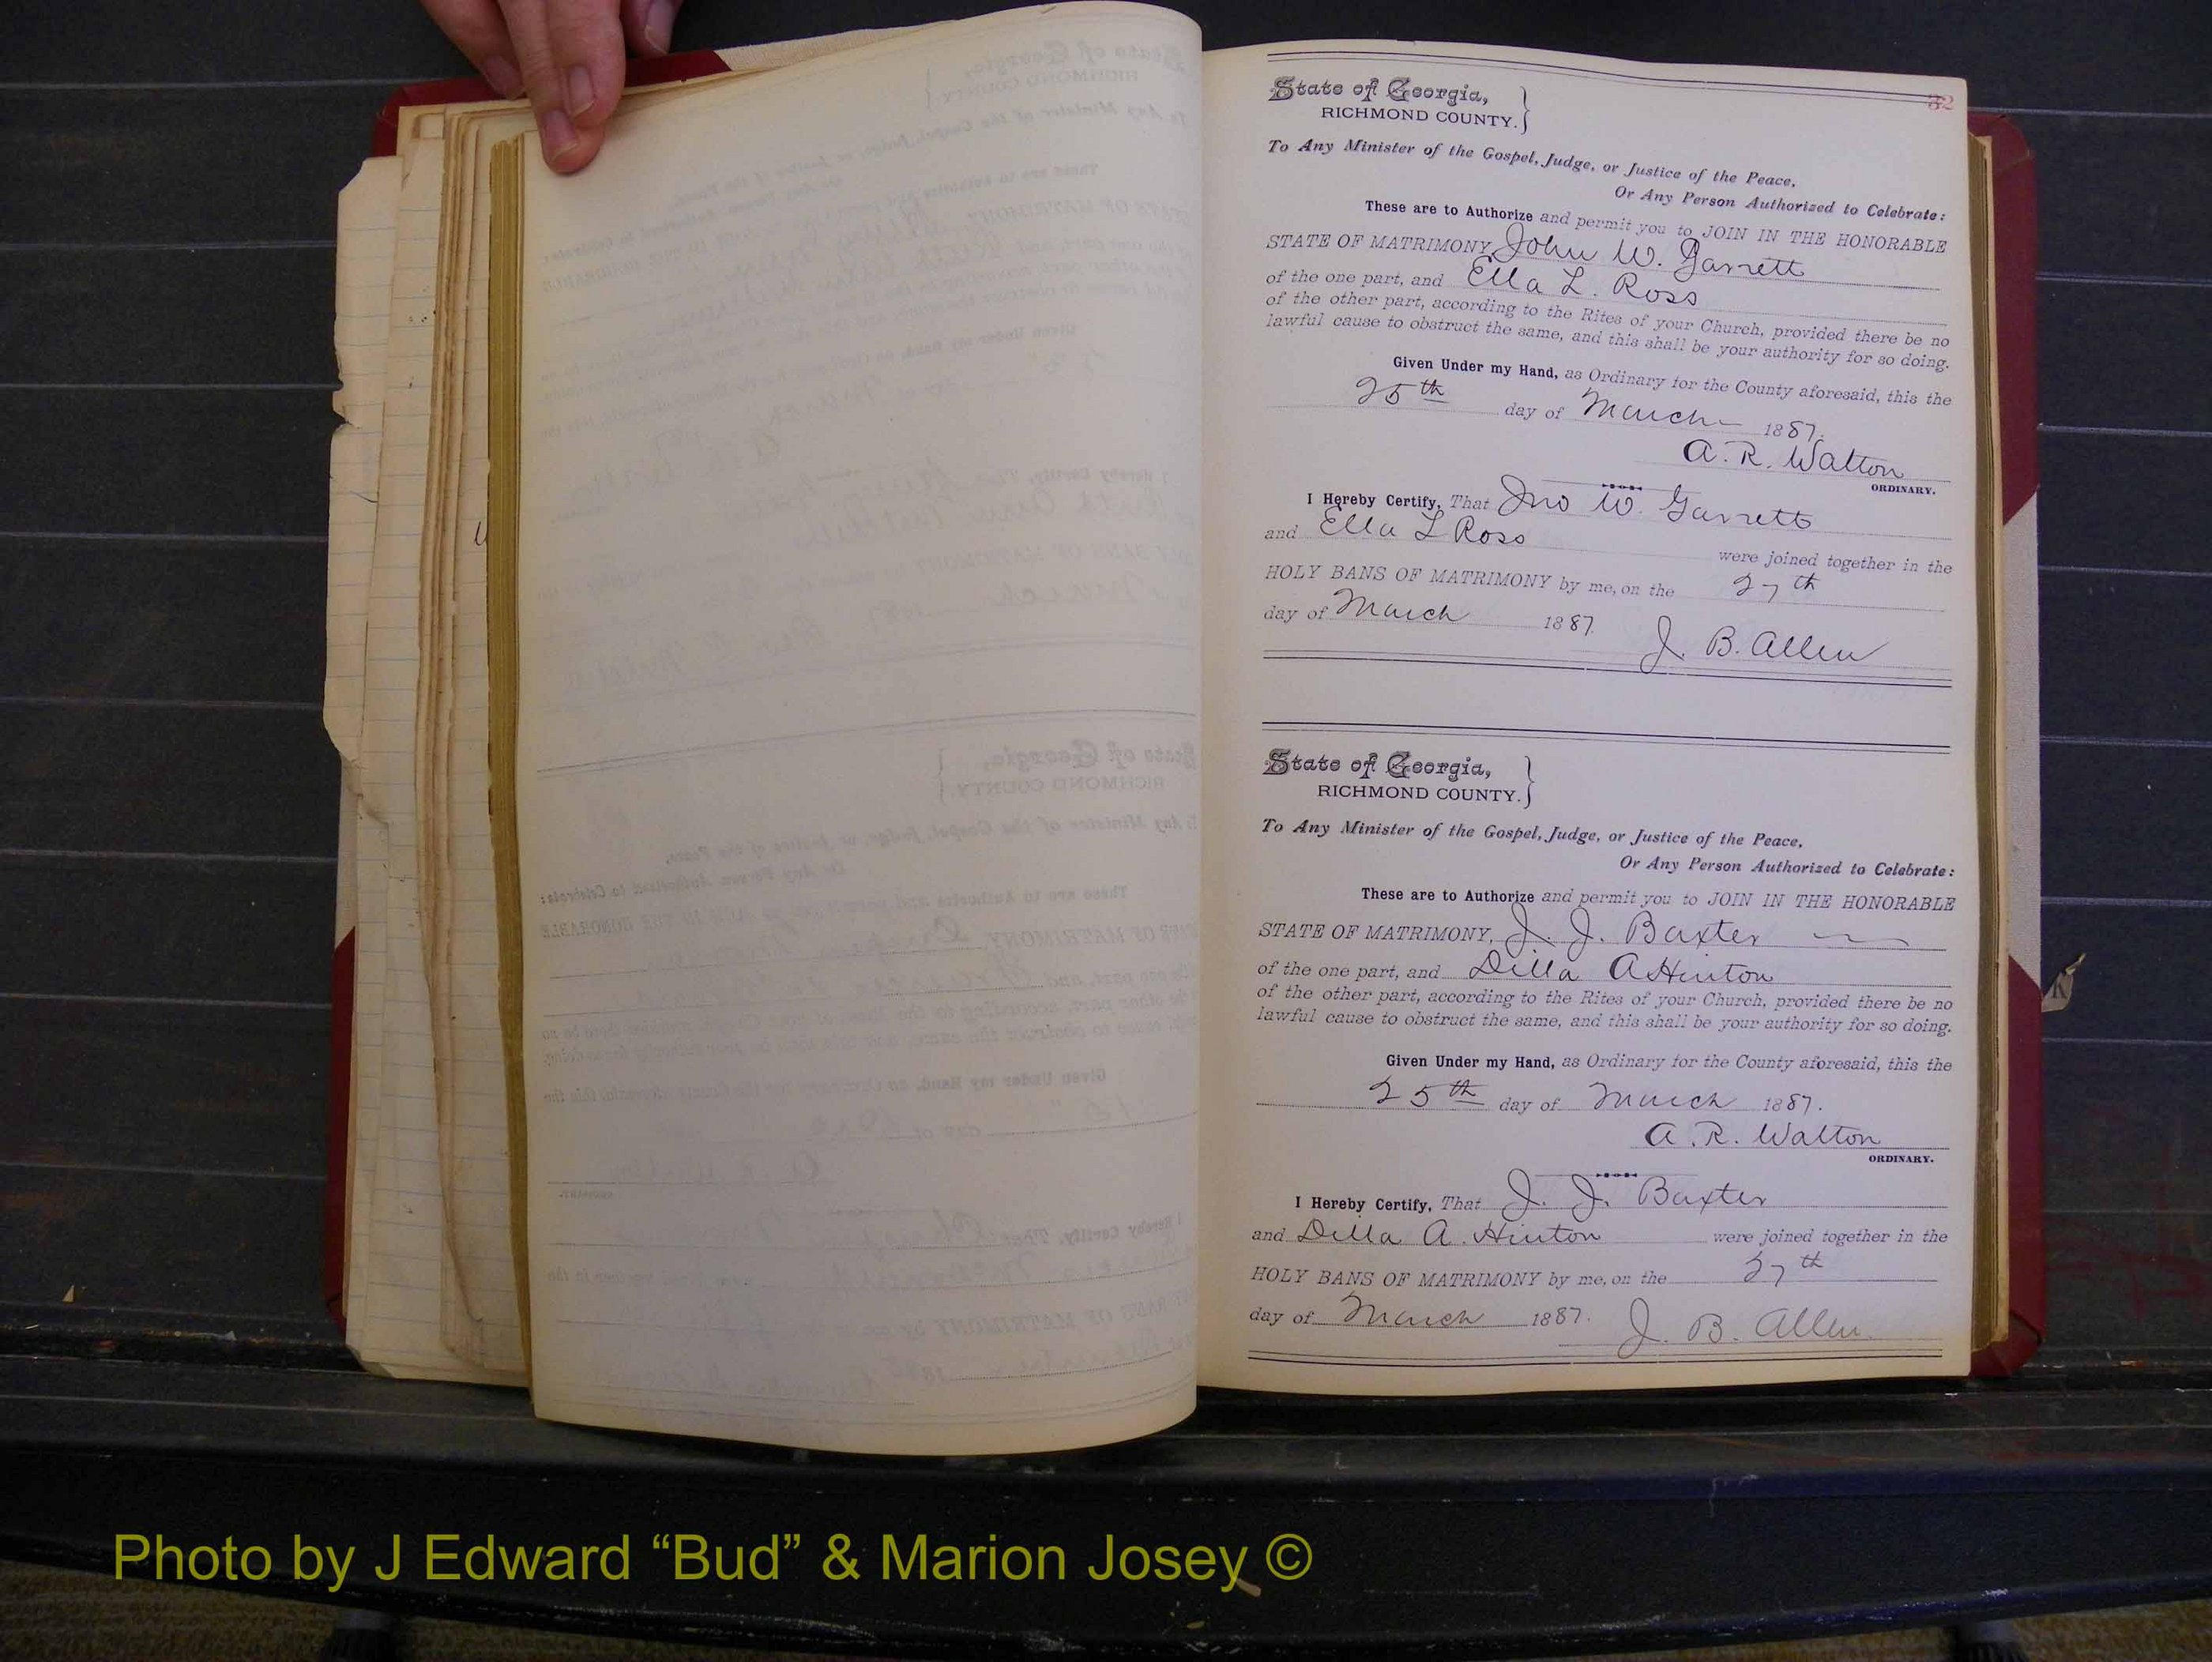 32
State of Georgia,
RICHMOND COUNTY.
To Any Minister of the Gospel, Judge, or Justice of the Peace,
Or Any Person Authorized to Celebrate:
These are to Authorize and permit you to JOIN IN THE HONORABLE
STATE OF MATRIMONY, John W. Garrett
of the one part, and Ella L. Ross
of the other part, according to the Rites of your Church, provided there be no
lawful cause to obstruct the same, and this shall be your authority for so doing.
Given Under my Hand, as Ordinary for the County aforesaid, this the
25th day of March 1887.
A. R. Walton
ORDINARY.
I Hereby Certify, That Jno W. Garrett
and Ella L Ross were joined together in the
HOLY BANS OF MATRIMONY by me, on the 27th
day of March 1887.
J. B. Allen
State of Georgia,
RICHMOND COUNTY.
To Any Minister of the Gospel, Judge, or Justice of the Peace,
Or Any Person Authorized to Celebrate:
These are to Authorize and permit you to JOIN IN THE HONORABLE
STATE OF MATRIMONY, J. J. Baxter
of the one part, and Dilla A Hinton
of the other part, according to the Rites of your Church, provided there be no
lawful cause to obstruct the same, and this shall be your authority for so doing.
Given Under my Hand, as Ordinary for the County aforesaid, this the
25th day of March 1887.
A. R. Walton
ORDINARY.
I Hereby Certify, That J. J. Baxter
and Dilla A. Hinton were joined together in the
HOLY BANS OF MATRIMONY by me, on the 27th
day of March 1887.
J. B. Allen.
Photo by J Edward “Bud” & Marion Josey ©